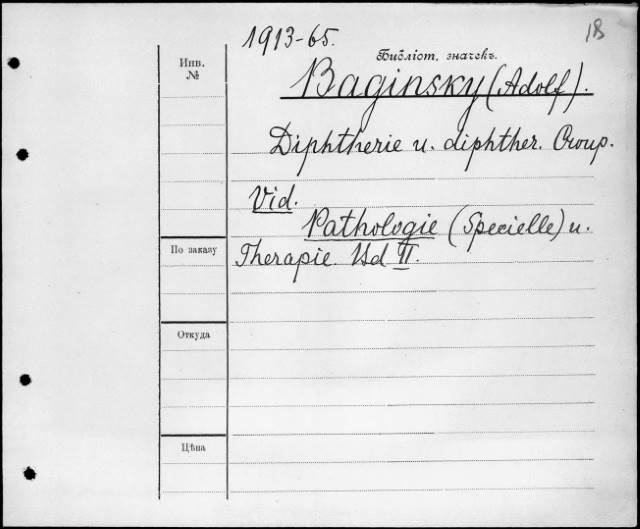 18
1913-65.
Библіот. значекъ.
Инв.
№
Baginsky (Adolf).
Diphtherie u. diphther. Croup.
Vid.
Pathologie (Specielle) u.
По заказу
Therapie. Bd II.
Откуда
Цѣна